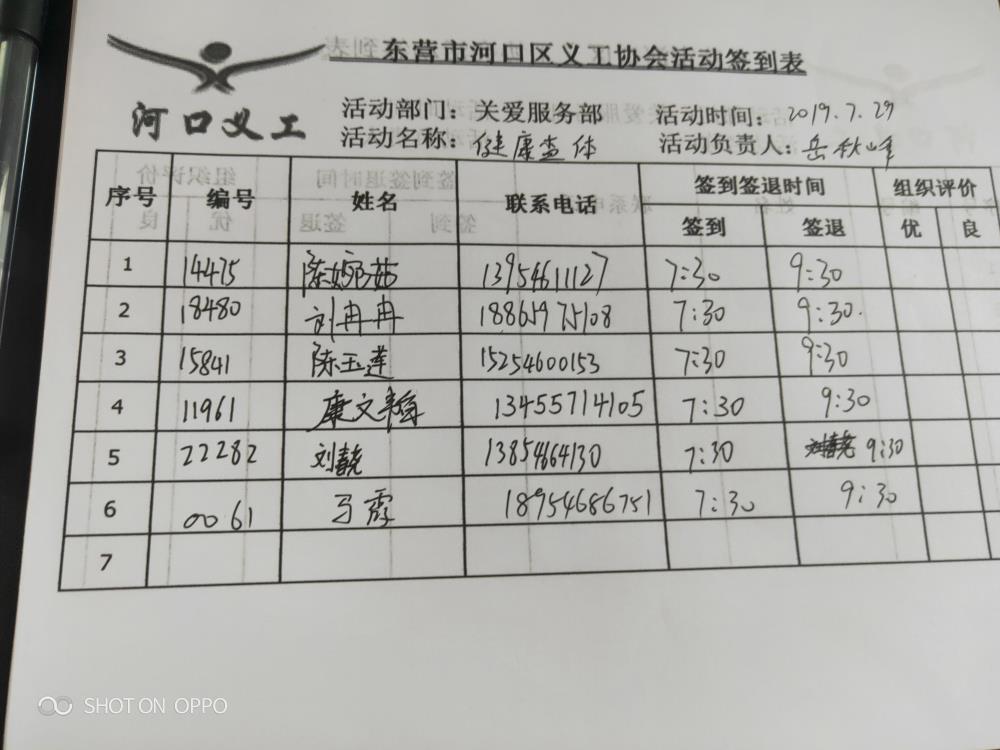 东营市河口区义工协会活动签到表
河口义工
活动部门：关爱服务部 活动时间：2019.7.29
活动名称：健康查体 活动负责人：岳秋峰
序号 编号 姓名 联系电话 签到签退时间 组织评价
签到 签退 优 良
1 14475 13954611127 7:30 9:30
2 18480 刘冉冉 18865975108 7:30 9:30.
3 15841 陈玉莲 15254600153 7:30 9:30
4 11961 康文翰 13455714105 7:30 9:30
5 22282 刘 13854664130 7:30 9:30
6 0061 马霞 18954686751 7:30 9:30
7
SHOT ON OPPO